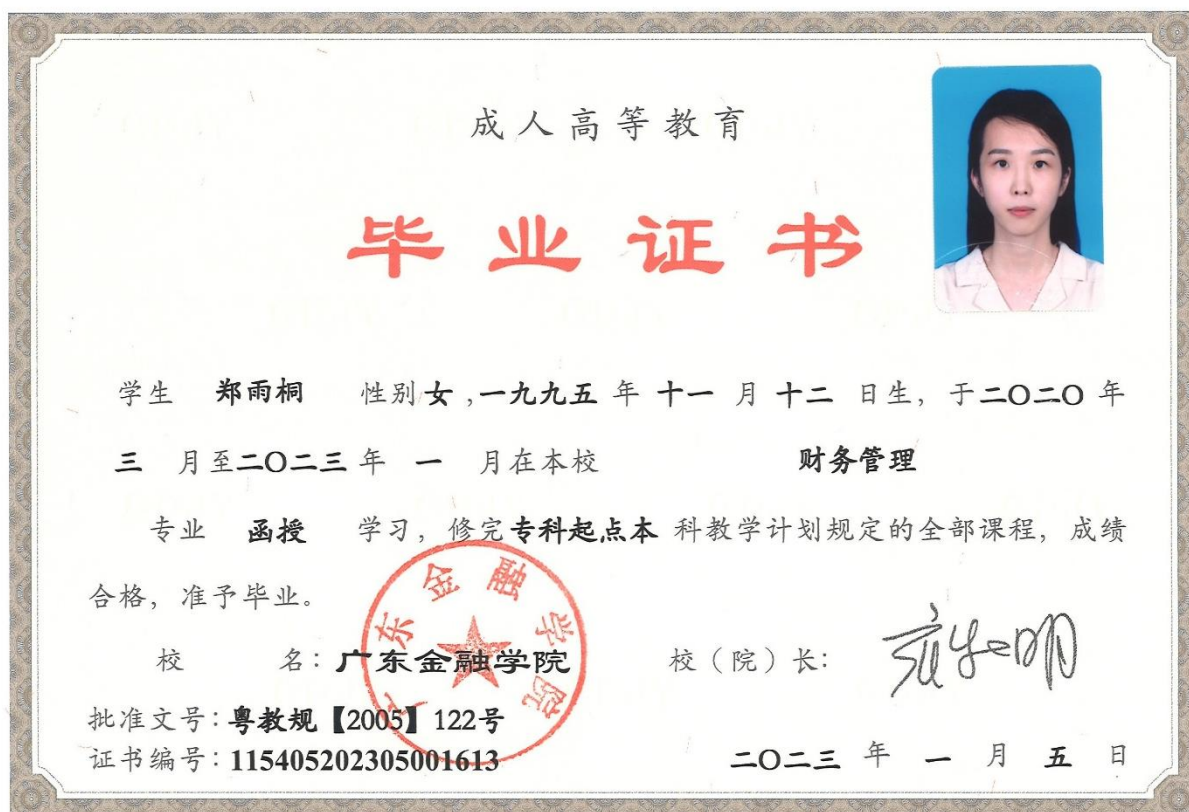 成人高等教育
毕业证书
学生 郑雨桐 性别女,一九九五年十一月十二日生，于二〇二〇年
三月至二〇二三年一月在本校 财务管理
专业 函授 学习，修完专科起点本科教学计划规定的全部课程，成绩
合格，准予毕业。
广东金融学院
校 名：广东金融学院 校（院）长：
批准文号：粤教规【2005】122号
证书编号：115405202305001613 二〇二三年一月五日